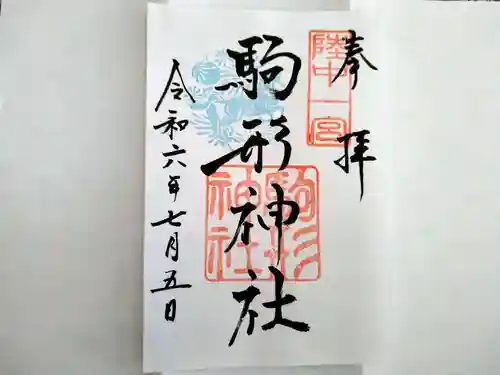 奉拝
陸中一宮
駒形神社
駒形神社
令和六年七月五日